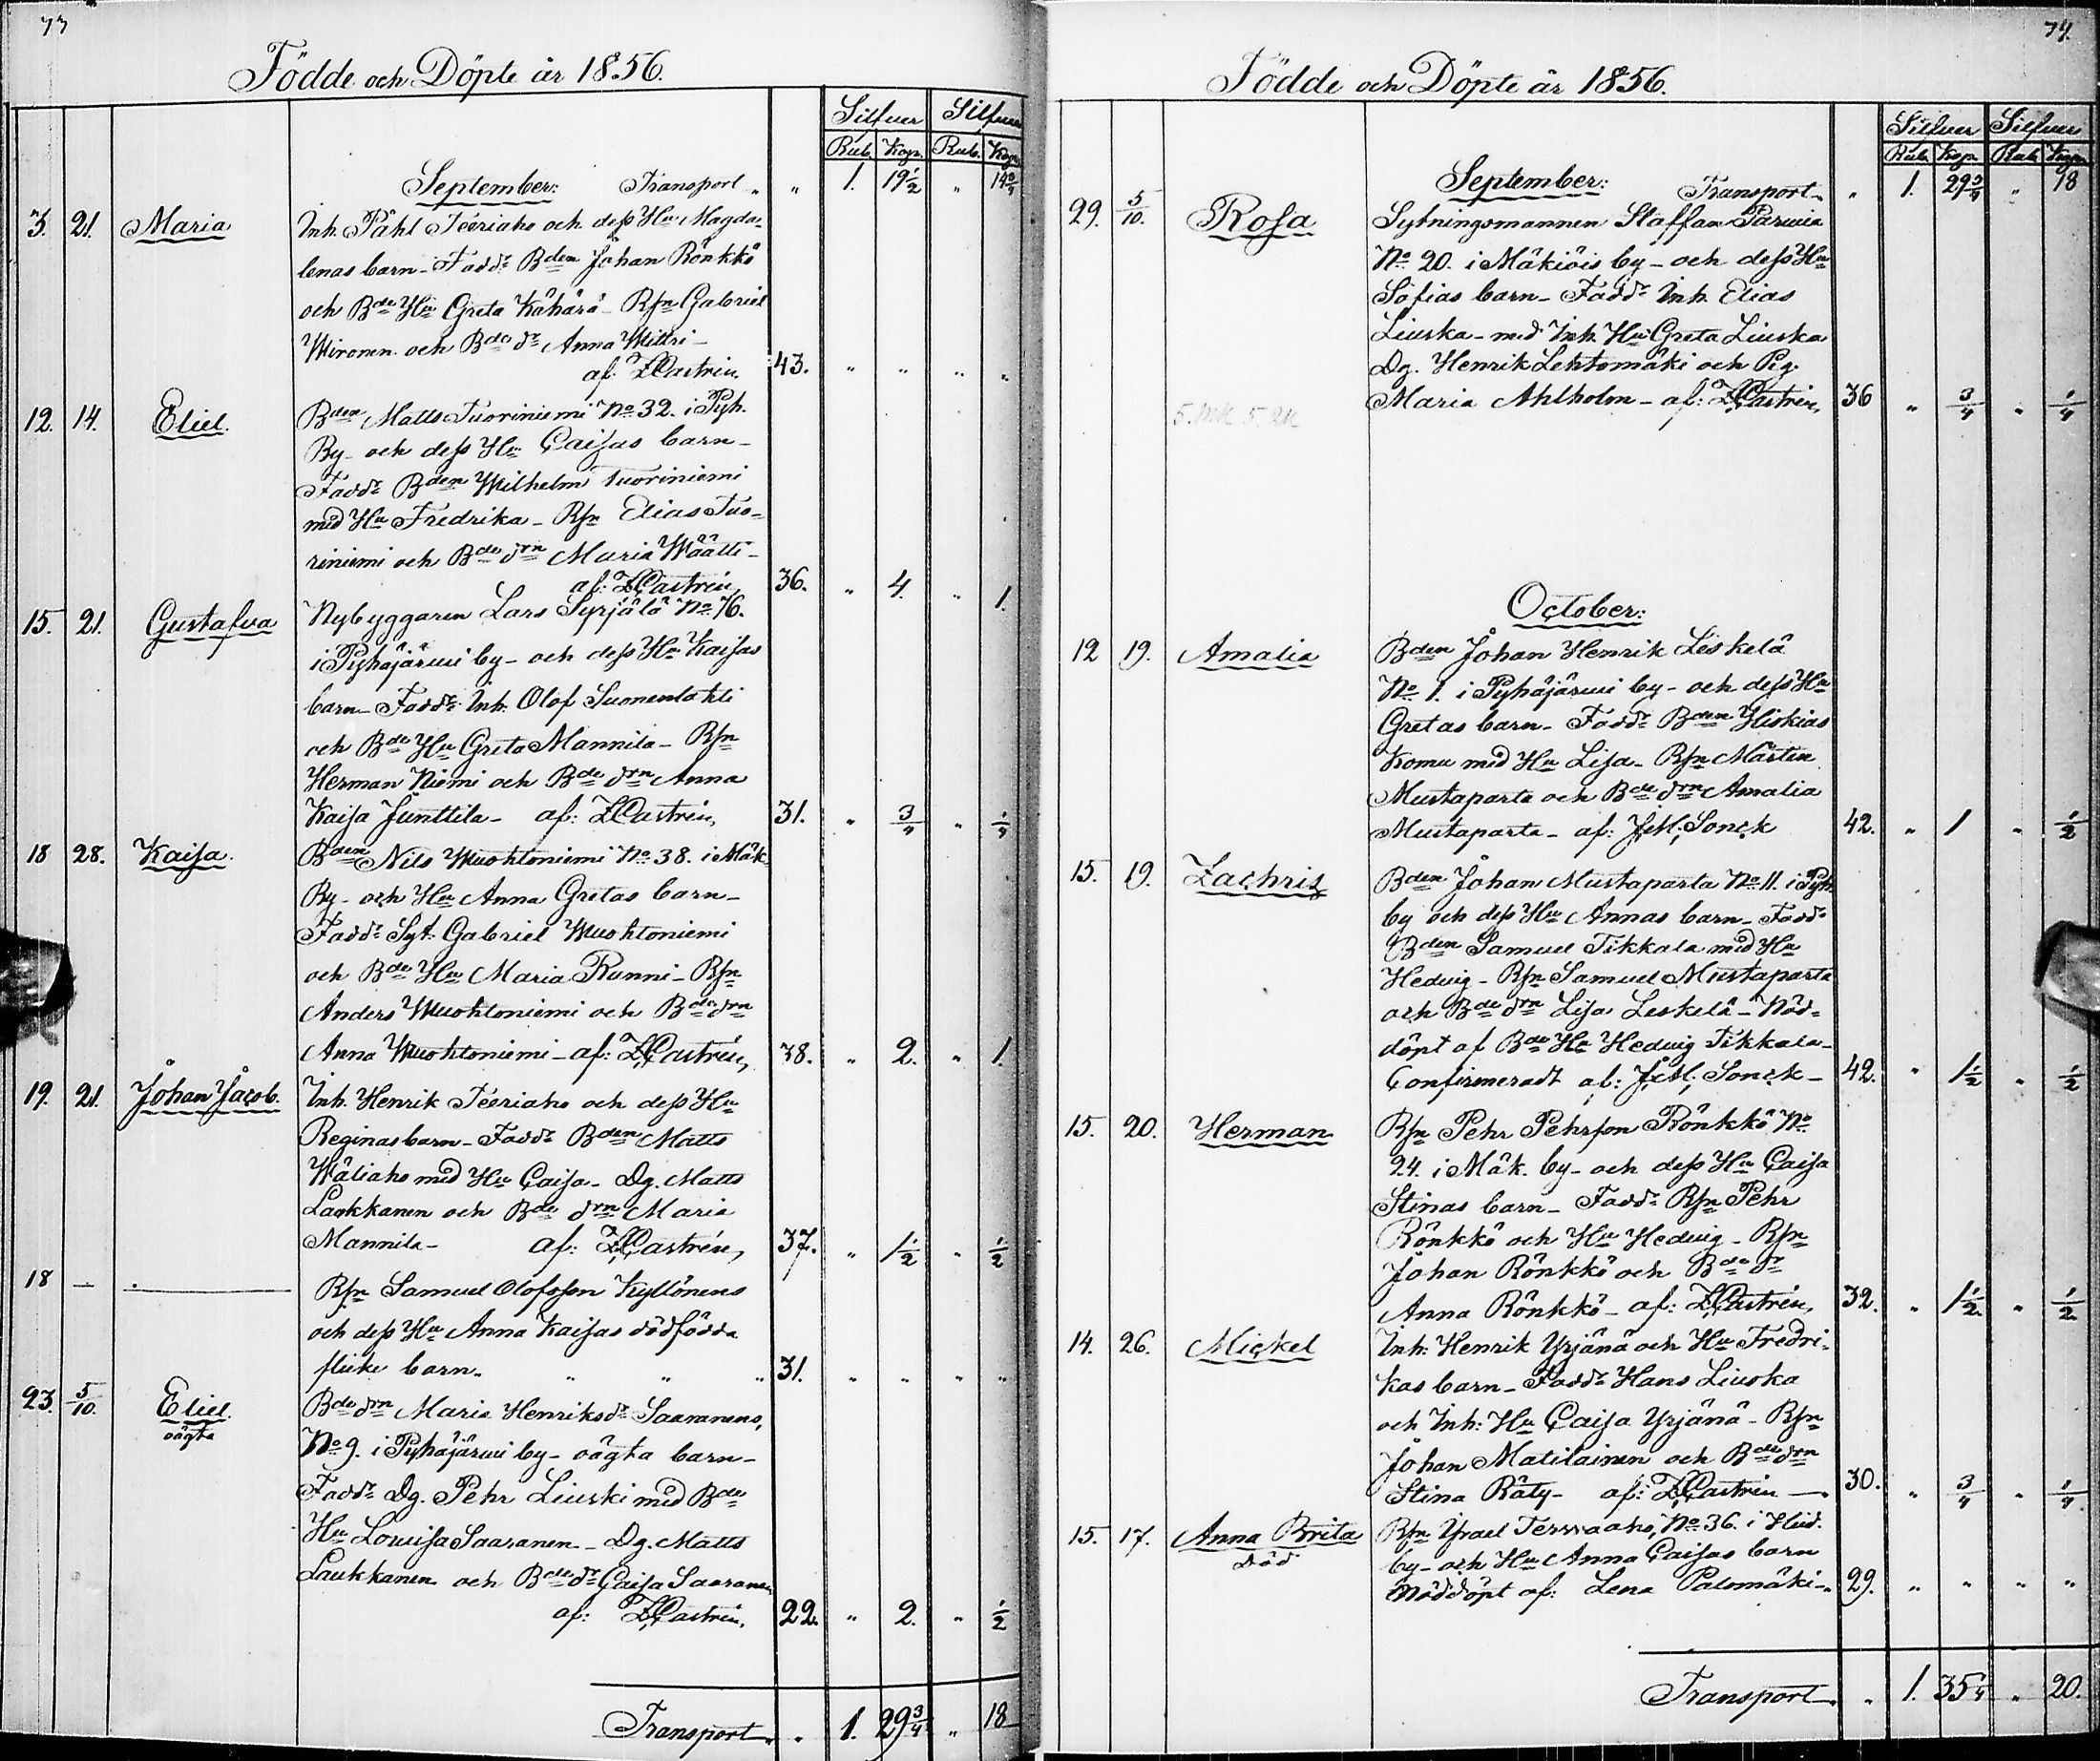 73
Födde och Döpte år 1856.
Silfver Silfver
Rub. Kop. Rub. Kop.
September: Transport „ „ 1. 19½ „ 14¾
3. 21. Maria Inh. Påhl Teeriaho och dess Hu Magda-
lenas barn – Fadd: Bden Johan Rönkkö
och Bde Hu Greta Kähärä – Bsn Gabriel
Mironen och Bde dr Anna Wittri –
af: ZCastrén. 43. „ „ „ „
12. 14. Eliel. Bden Matts Tuoriniemi No 32. i Pyh.
By – och dess Hu Caisas barn –
Fadd: Bden Wilhelm Tuoriniemi
med Hu Fredrika – Bsn Elias Tuo-
riniemi och Bde drn Maria Wäätti –
af: ZCastrén, 36. „ 4. „ 1.
15. 21. Gustafva Nybyggaren Lars Syrjälä No 76.
i Pyhäjärwi by – och dess Hu Kaisas
barn – Fadd: Inh. Olof Suomenlahti
och Bde Hu Greta Mannila – Bsn
Herman Niemi och Bde drn Anna
Kaisa Junttila – af: ZCastrén, 31. „ ¾ „ ¼
18 28. Kaisa. Bden Nils Muohtoniemi No 38. i Mäk.
By – och Hu Anna Gretas barn –
Fadd: Syt. Gabriel Muohtoniemi
och Bde Hu Maria Runni – Bsn
Anders Muohtoniemi och Bde drn
Anna Muohtoniemi – af: ZCastrén, 38. „ 2. „ 1.
19. 21. Johan Jacob. Inh. Henrik Teeriaho och dess Hu
Reginas barn – Fadd: Bden Matts
Wäliaho med Hu Caisa – Dg. Matts
Laukkanen och Bde drn Maria
Mannila – af: ZCastrén, 37. „ 1½ „ ½
18 — — Bsn Samuel Olofsson Kyllönens
och dess Hu Anna Kaisas dödfödda
flicke barn. „ „ „ 31. „ „ „ „
23. 5/10. Eliel. Bde drn Maria Henriksdr Saaranens,
oägta No 9. i Pyhäjärwi by – oägta barn –
Fadd: Dg. Pehr Liuski med Bde
Hu Lovisa Saaranen – Dg. Matts
Laukkanen och Bde dr Caisa Saaranen
af: ZCastrén, 22. „ 2. „ ½
Transport „ 1. 29¾ „ 18
74.
Födde och Döpte år 1856.
Silfver Silfver
Rub. Kop. Rub. Kop.
September: Transport „ „ 1. 29¾ „ 18
29. 5/10. Rosa Sytningsmannen Staffan Parwia
No 20. i Mäkiöis by – och dess Hu
Sofias barn – Fadd: Inh. Elias
Liuska – med Inh. Hu Greta Liuska
Dg. Henrik Lehtomäki och Pig.
Maria Ahlholm – af: ZCastrén, 36 „ ¾ „ ¼
October:
12 19. Amalia Bden Johan Henrik Leskelä
No 1. i Pyhäjärwi by – och dess Hu
Gretas barn – Fadd: Bden Hiskias
Komu med Hu Lisa – Bsn Mårten
Mustaparta och Bde drn Amalia
Mustaparta – af: J.M. Sonck 42. „ 1 „ ½
15. 19. Zachris Bden Johan Mustaparta No 11. i Pyh.
by och dess Hu Annas barn – Fadd:
Bden Samuel Tikkala med Hu
Hedvig – Bsn Samuel Mustaparta
och Bde drn Lisa Leskelä – Nöd-
döpt af Bde Hu Hedvig Tikkala –
Confirmeradt af: J.M. Sonck – 42. „ 1½ „ ½
15. 20. Herman Bsn Pehr Pehrson Rönkkö No
24. i Mäk. by – och dess Hu Caisa
Stinas barn – Fadd: Bsn Pehr
Rönkkö och Hu Hedvig – Bsn
Johan Rönkkö och Bde dr
Anna Rönkkö – af: ZCastrén, 32. „ 1½ „ ½
14. 26. Mickel Inh: Henrik Yrjänä och Hu Fredri-
kas barn – Fadd: Hans Liuska
och Inh: Hu Caisa Yrjänä – Bsn
Johan Matilainen och Bde drn
Stina Räty – af: ZCastrén — 30. „ ¾ „ ¼
15. 17. Anna Brita Bsn Israel Terwaaho, No 36. i Hid.
Död by – och Hu Anna Caisas barn
Nöddöpt af: Lena Palomäki – 29. „ „ „ „
Transport „ 1. 35¼ „ 20.